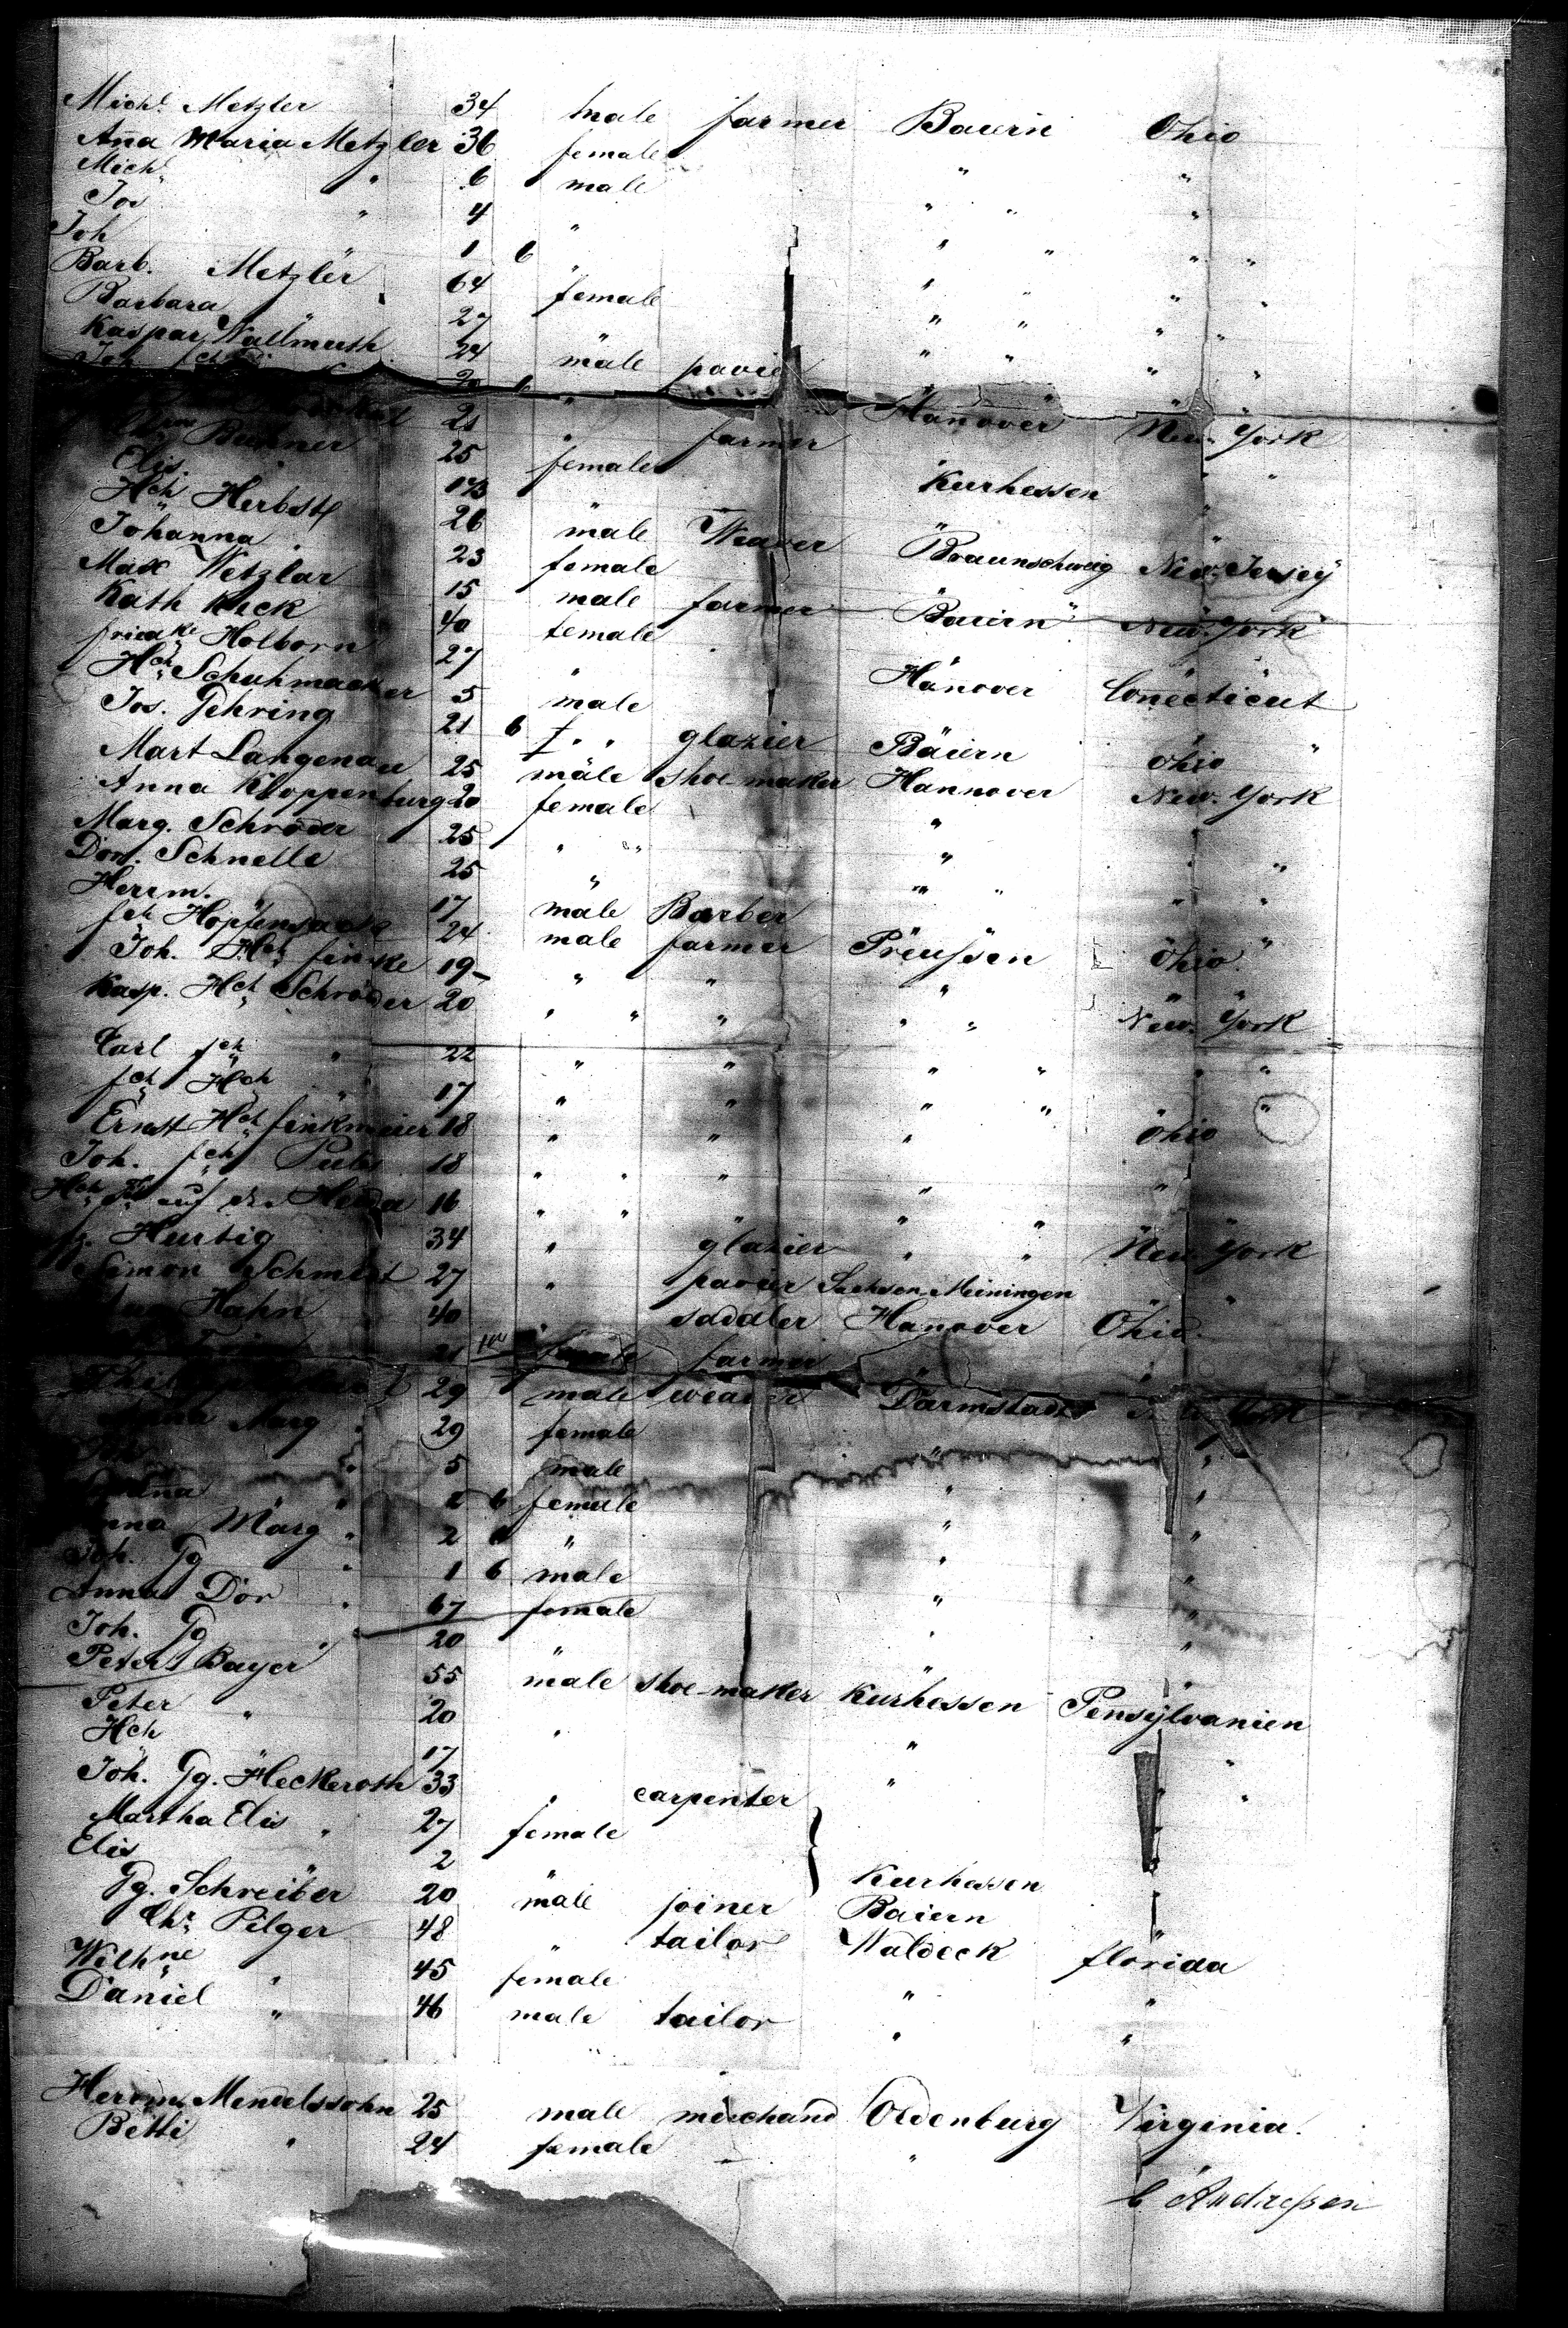 Michl. Metzler 34 male farmer Baiern Ohio
Anna Maria Metzler 36 female
Michl. " 6 male " "
Jos " 4 " " " "
Joh 1 6 " " " " "
Barb. Metzler 64 female " " " "
Barbara 27 " " " "
Kaspar Wallmuth 24 male " " " "
Joh
21 " farmer Hannover New-York
Büchner 25 female " "
Elis. " 1/3 Kurhessen "
Hch Herbst 26 male Weaver Braunschweig New-Jersey
Johanna " 23 female
Max Wetzlar 15 male farmer Baiern New-York
Kath Keck 40 female
friedke Holborn 27 " Hanover Conecticut
Hch Schuhmacker 5 male
Jos. Gehring 21 6 " " glazier Baiern Ohio "
Mart Langenau 25 male shoe-maker Hannover New-York
Anna Kloppenburg 20 female "
Marg. Schröder 25 " " " " "
Dor. Schnelle 25 " " " " "
Herrm. " 17 male Barber
fch Hopfensack 24 male farmer Preussen Ohio "
Joh. Hch finke 19 " " " "
Kasp. Hch Schröder 20 " " " " " New-York
Carl fch " 22 " " " " " "
fch Hch " 17 " " " " "
Ernst Hch finkmeier 18 " " " Ohio
Joh. fch 18 " " " " "
Hch auf der Heida 16 " " " " " "
Hurtig 34 " glazier " " New-York
Simon Schmidt 27 " pavier Sachsen-Meiningen "
Hahn 40 sadaler Hanover Ohio.
21 farmer " "
29 male weaver Darmstadt
Marg " 29 female "
5 male " "
6 female " "
Anna Marg " 2 " " "
Joh. Gg " 1 6 male " "
Anna Dor " 67 female " "
Joh. Gg " 20 " "
Peter Bayer 55 male shoe-maker Kurhessen Pensylvanien
Peter " 20 " "
Hch 17 " "
Joh. Gg. Heckeroth 33 " carpenter "
Martha Elis " 27 female
Elis 2 " Kurhessen
Gg. Schreiber 20 male joiner Baiern
Chr Pilger 48 " tailor Waldeck florida
Wilhne " 45 female " "
Daniel " 46 male tailor " "
Herrm. Mendelssohn 25 male merchand Oldenburg Virginia.
Betti " 24 female "
C Andressen